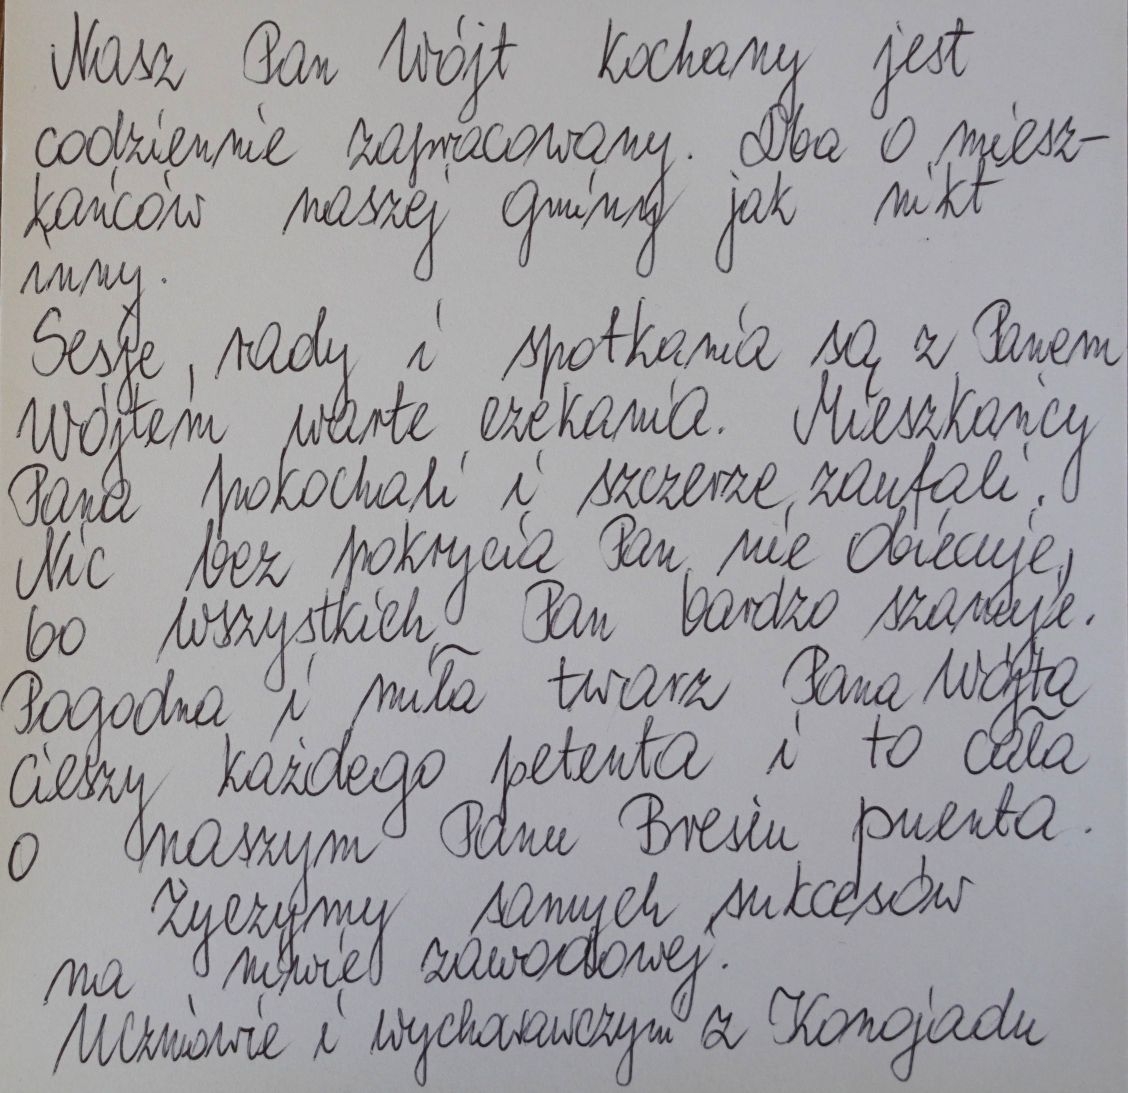 Nasz Pan Wójt kochany jest
codziennie zapracowany. Dba o miesz-
kańców naszej Gminny jak nikt
inny.
Sesje, rady i spotkania są z Panem
Wójtem warte czekania. Mieszkańcy
Pana pokochali i szczerze zaufali.
Nic bez pokrycia Pan nie obiecuje,
bo wszystkich Pan bardzo szanuje.
Pogodna i miła twarz Pana Wójta
cieszy każdego petenta i to cała
o naszym Panu Bresiu puenta.
Życzymy samych sukcesów
na niwie zawodowej.
Uczniowie i wychowawczyni z Konojadu